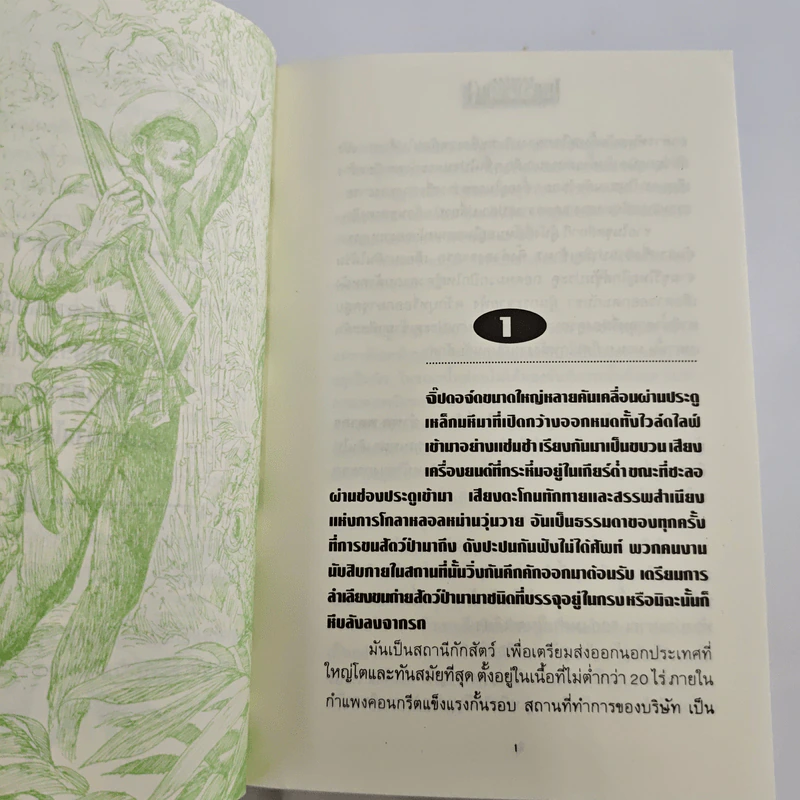 1
จิ๊ปดอจ์ดขนาดใหญ่หลายคันเคลื่อนผ่านประตู
เหล็กมหึมาที่เปิดกว้างออกหมดทั้งไวล์ดไลฟ์
เข้ามาอย่างแช่มช้า เรียงกันมาเป็นขบวน เสียง
เครื่องยนต์ที่กระหึ่มอยู่ในเกียร์ต่ำ ขณะที่ชะลอ
ผ่านช่องประตูเข้ามา เสียงตะโกนทักทายและสรรพสำเนียง
แห่งการโกลาหลอลหม่านวุ่นวาย อันเป็นธรรมดาของทุกครั้ง
ที่การขนสัตว์ป่ามาถึง ดังปะปนกันฟังไม่ได้ศัพท์ พวกคนงาน
นับสิบภายในสถานที่นั้นวิ่งกันคึกคักออกมาต้อนรับ เตรียมการ
ลำเลียงขนถ่ายสัตว์ป่านานาชนิดที่บรรจุอยู่ในกรง หรือมิฉะนั้นก็
หีบลังลงจากรถ
มันเป็นสถานีกักสัตว์ เพื่อเตรียมส่งออกนอกประเทศที่
ใหญ่โตและทันสมัยที่สุด ตั้งอยู่ในเนื้อที่ไม่ต่ำกว่า 20 ไร่ ภายใน
กำแพงคอนกรีตแข็งแรงกั้นรอบ สถานที่ทำการของบริษัท เป็น
1